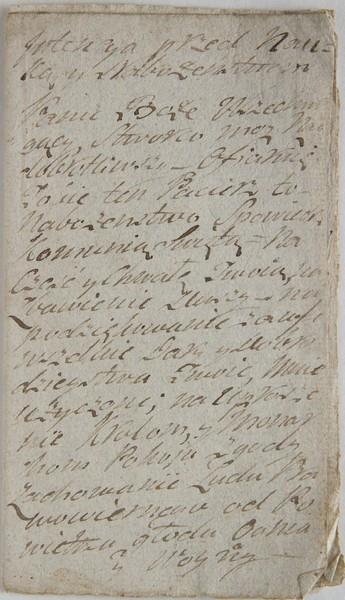 Intencya przed Nau-
ką y Nabożenstwem
Panie Boże Wszechmo
gący, Stworco moy Nay
dobrotliwszy Ofiaruię
Tobie ten Pacierz to
Nabożenstwo Spowiedz
Kommunią Swiętą Na
Cześć y Chwałę Twoię, na
Zbawienie Duszy na
podziękowanie za
wszelkie Dary y Dobro
dzieystwa Twoie, Mnie
użyczone; na Uprosze
nie Krolom, y Monar
chom Pokoju Zgody
zachowanie Ludu Pra
wowiernego od Po
wietrza głodu Ognia
y Woyny